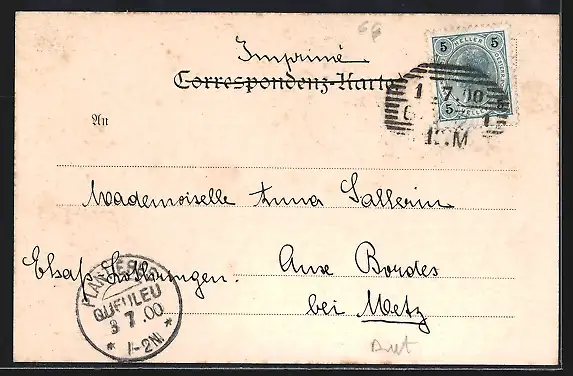 66
Imprimé
Correspondenz-Karte
5 HELLER 5
5 HELLER
1 7.00
6 1
N.M
An
Mademoiselle Anna Sallerin
Elsaß Lothringen. Aux Bordes
bei Metz
PLANTIÈRES
QUEULEU
3 7.00
* 1-2N. *